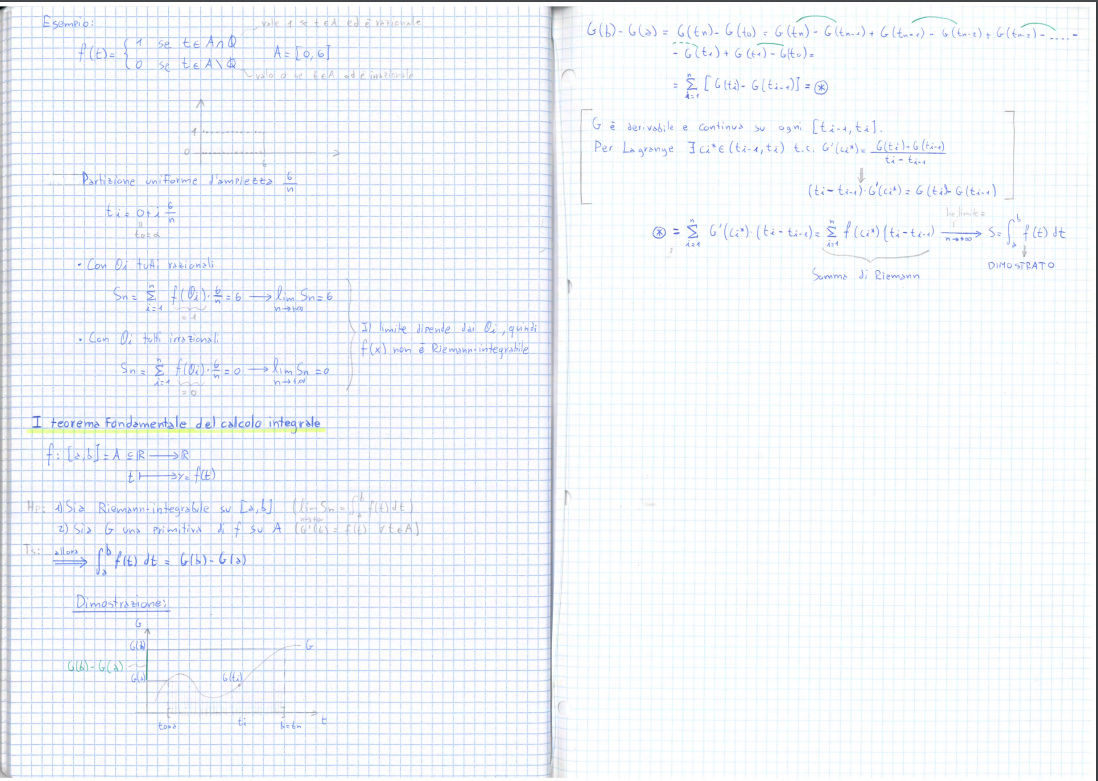 Esempio:
vale 1 se t∈A ed è razionale
f(t)= { 1 se t∈A∩Q
0 se t∈A\Q
A=[0,6]
vale 0 se t∈A ed è irrazionale
1
0
6
Partizione uniforme d'ampiezza 6/n
ti = 0+i 6/n
t0=a
• Con θi tutti razionali
Sn = Σ_{i=1}^{n} f(θi)·6/n = 6 → lim_{n→+∞} Sn = 6
=1
• Con θi tutti irrazionali
Sn = Σ_{i=1}^{n} f(θi)·6/n = 0 → lim_{n→+∞} Sn = 0
=0
Il limite dipende dai θi, quindi
f(x) non è Riemann-integrabile
I teorema Fondamentale del calcolo integrale
f: [a,b] = A ⊆ R → R
t ↦ y = f(t)
Hp: 1) Sia Riemann-integrabile su [a,b] (lim_{n→+∞} Sn = ∫_a^b f(t) dt)
2) Sia G una primitiva di f su A [G'(t) = f(t) ∀t∈A]
Ts: allora ⟹ ∫_a^b f(t) dt = G(b)-G(a)
Dimostrazione:
G
G(b)
G
G(b)-G(a)
G(a)
G(ti)
t0=a
ti
b=tn
t
G(b)-G(a) = G(tn)-G(t0) = G(tn)-G(tn-1)+G(tn-1)-G(tn-2)+G(tn-2)-....-
-G(t1)+G(t1)-G(t0)=
= Σ_{i=1}^{n} [G(ti)-G(ti-1)] = ⊛
G è derivabile e continua su ogni [ti-1,ti].
Per Lagrange ∃ci*∈(ti-1,ti) t.c. G'(ci*) = (G(ti)-G(ti-1))/(ti-ti-1)
⇓
(ti-ti-1)·G'(ci*) = G(ti)-G(ti-1)
⊛ = Σ_{i=1}^{n} G'(ci*)·(ti-ti-1) = Σ_{i=1}^{n} f(ci*)(ti-ti-1) →_{n→+∞} S = ∫_a^b f(t) dt
Somma di Riemann
DIMOSTRATO